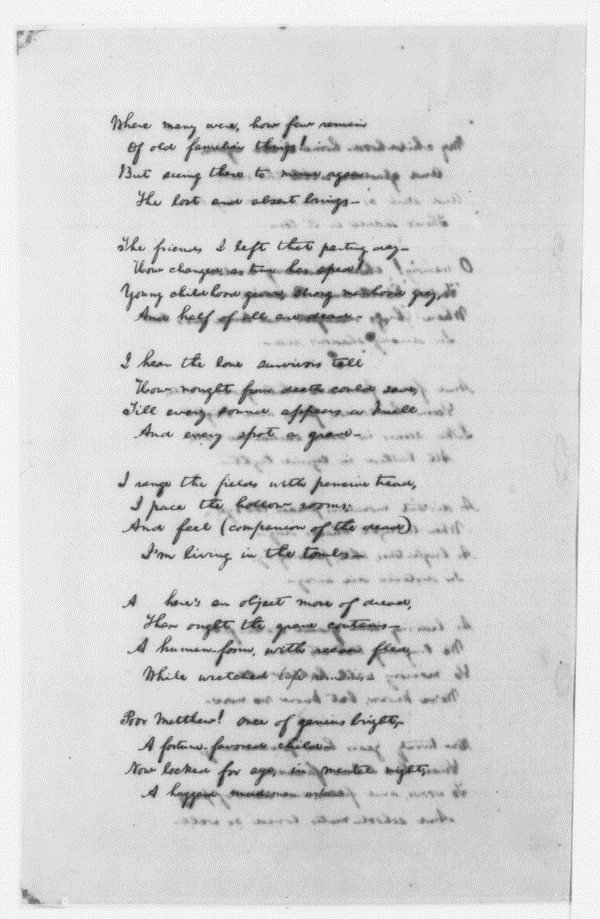 Where many were, how few remain
Of old familiar things!
But seeing them to mind again
The lost and absent brings—
The friends I left that parting day—
How changed, as time has sped!
Young childhood grown, strong manhood grey,
And half of all are dead.
I hear the lone survivors tell
How nought from death could save,
Till every sound appears a knell
And every spot a grave—
I range the fields with pensive tread,
I pace the hollow rooms;
And feel (companion of the dead)
I'm living in the tombs—
A here's an object more of dread,
Than ought the grave contains—
A human-form, with reason fled,
While wretched life remains
Poor Matthew! once of genius bright,—
A fortune-favored child
Now locked for age, in mental night,
A haggard mad-man wild